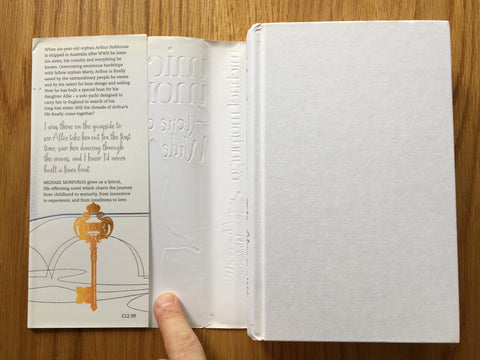 When six-year-old orphan Arthur Hobhouse
is shipped to Australia after WWII he loses
his sister, his country and everything he
knows. Overcoming enormous hardships
with fellow orphan Marty, Arthur is finally
saved by the extraordinary people he meets
and by his talent for boat-design and sailing.
Now he has built a special boat for his
daughter Allie – a solo yacht designed to
carry her to England in search of his
long-lost sister. Will the threads of Arthur's
life finally come together?
I was there on the quayside to
see Allie take her out for the first
time, saw her dancing through
the waves, and I knew I'd never
built a finer boat.
MICHAEL MORPURGO gives us a lyrical,
life-affirming novel which charts the journey
from childhood to maturity, from innocence
to experience, and from loneliness to love.
£12.99